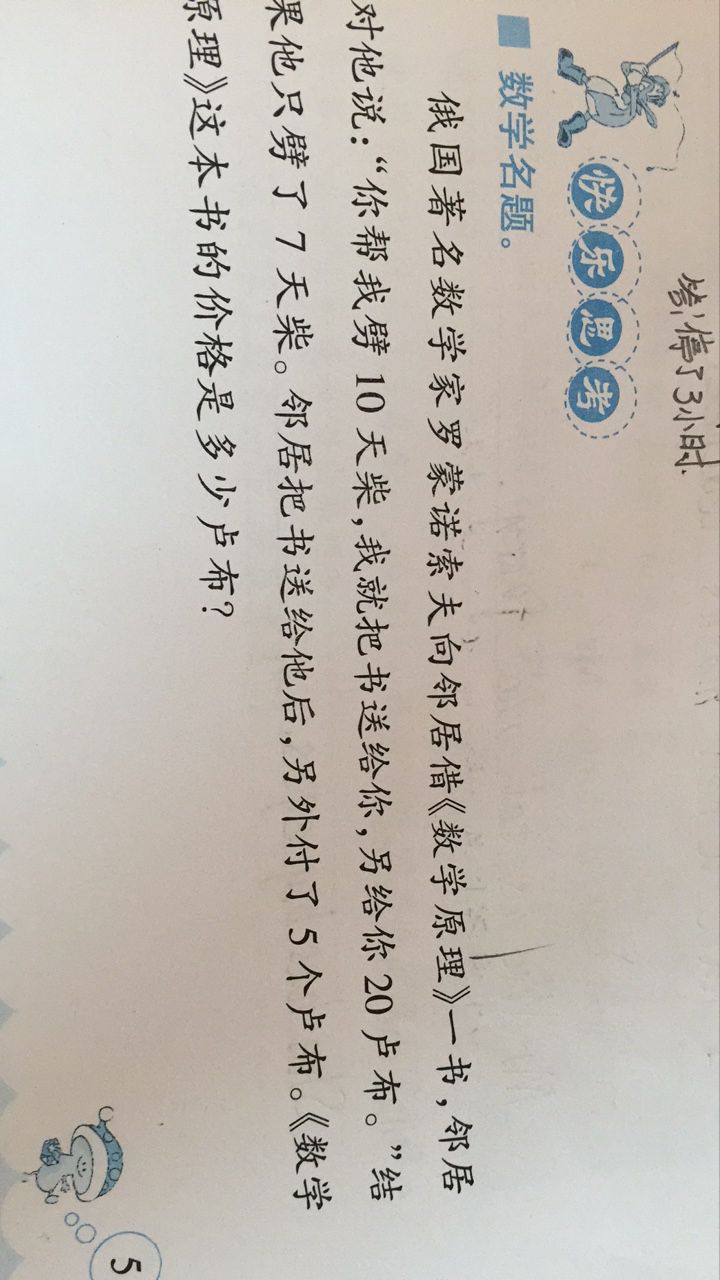 答:停了3小时.
快乐思考
■ 数学名题。
俄国著名数学家罗蒙诺索夫向邻居借《数学原理》一书,邻居
对他说:“你帮我劈10天柴,我就把书送给你,另给你20卢布。”结
果他只劈了7天柴。邻居把书送给他后,另外付了5个卢布。《数学
原理》这本书的价格是多少卢布?
5